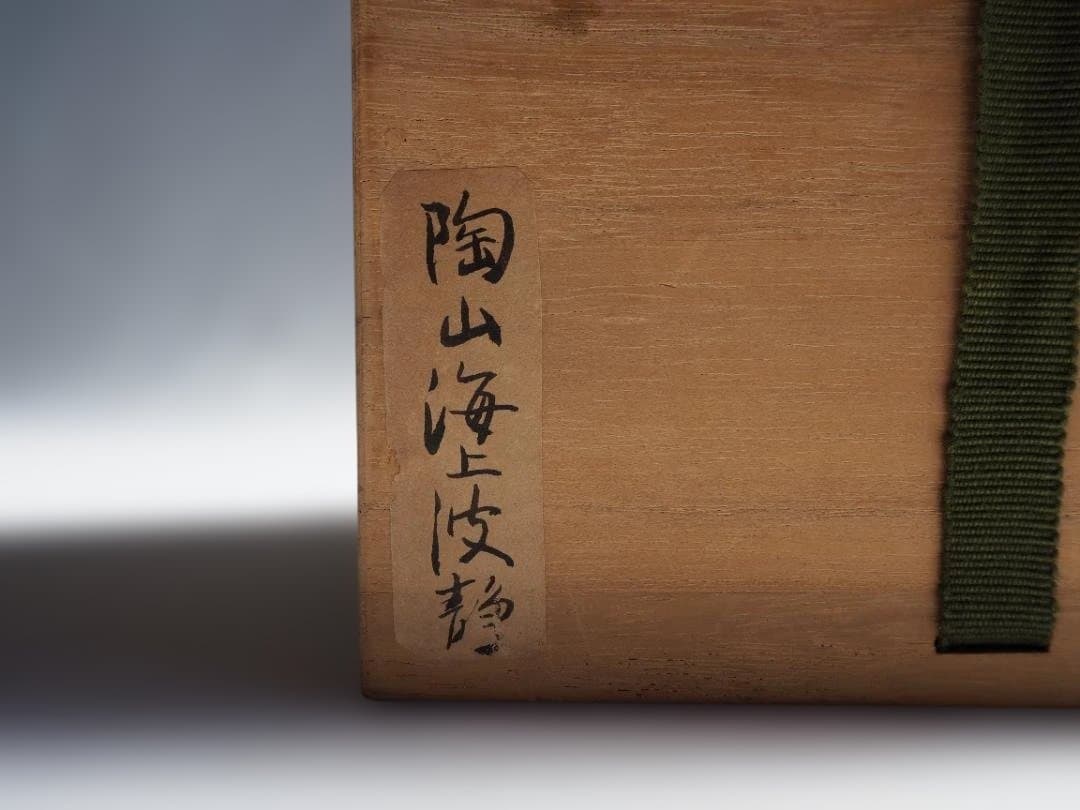 陶山海上波静